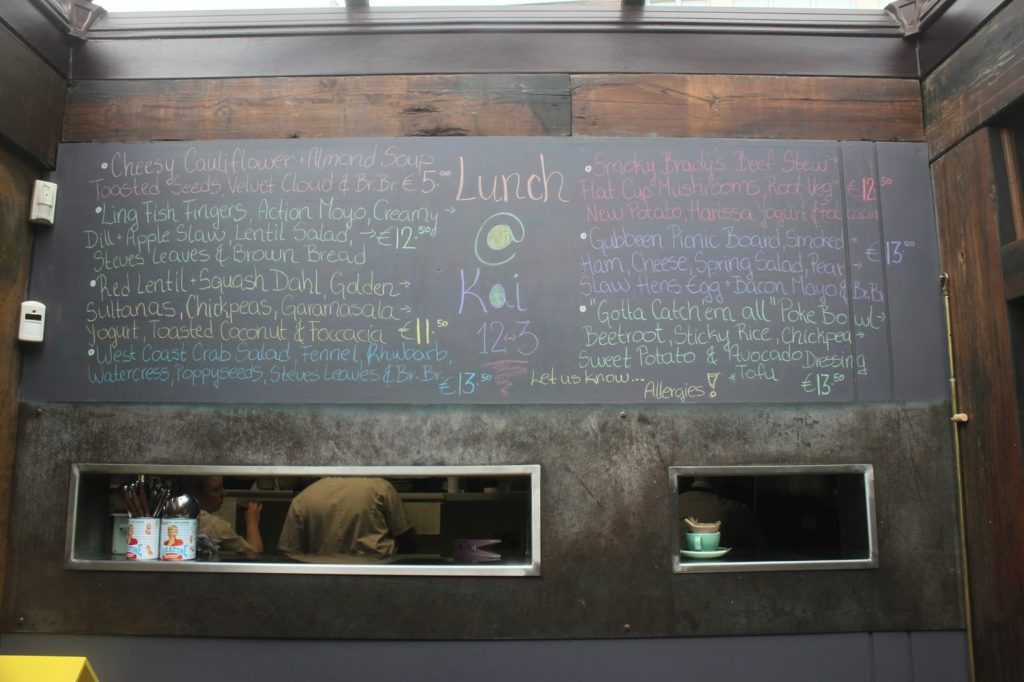 • Cheesy Cauliflower + Almond Soup
Toasted Seeds, Velvet Cloud & Br.Br €5.00
• Ling Fish Fingers, Action Mayo, Creamy →
Dill + Apple Slaw, Lentil Salad, → €12.50
Steves Leaves & Brown Bread
• Red Lentil + Squash Dahl, Golden →
Sultanas, Chickpeas, Garamasala →
Yogurt, Toasted Coconut & Foccacia €11.50
• West Coast Crab Salad, Fennel, Rhubarb,
Watercress, Poppyseeds, Steves Leaves & Br.Br. €13.50
Lunch
@
Kai
12→3
Let us know...
Allergies!
• Smoky Brady's Beef Stew →
Flat Cup Mushrooms, Root Veg €12.50
New Potato, Harissa Yogurt & Foccacia
• Gubbeen Picnic Board, Smoked → €13.50
Ham, Cheese, Spring Salad, Pear →
Slaw Hens Egg + Bacon Mayo & Br.Br
• "Gotta Catch em all" Poke Bowl
Beetroot, Sticky Rice, Chickpea →
Sweet Potato & Avocado Dressing
* Tofu €13.50